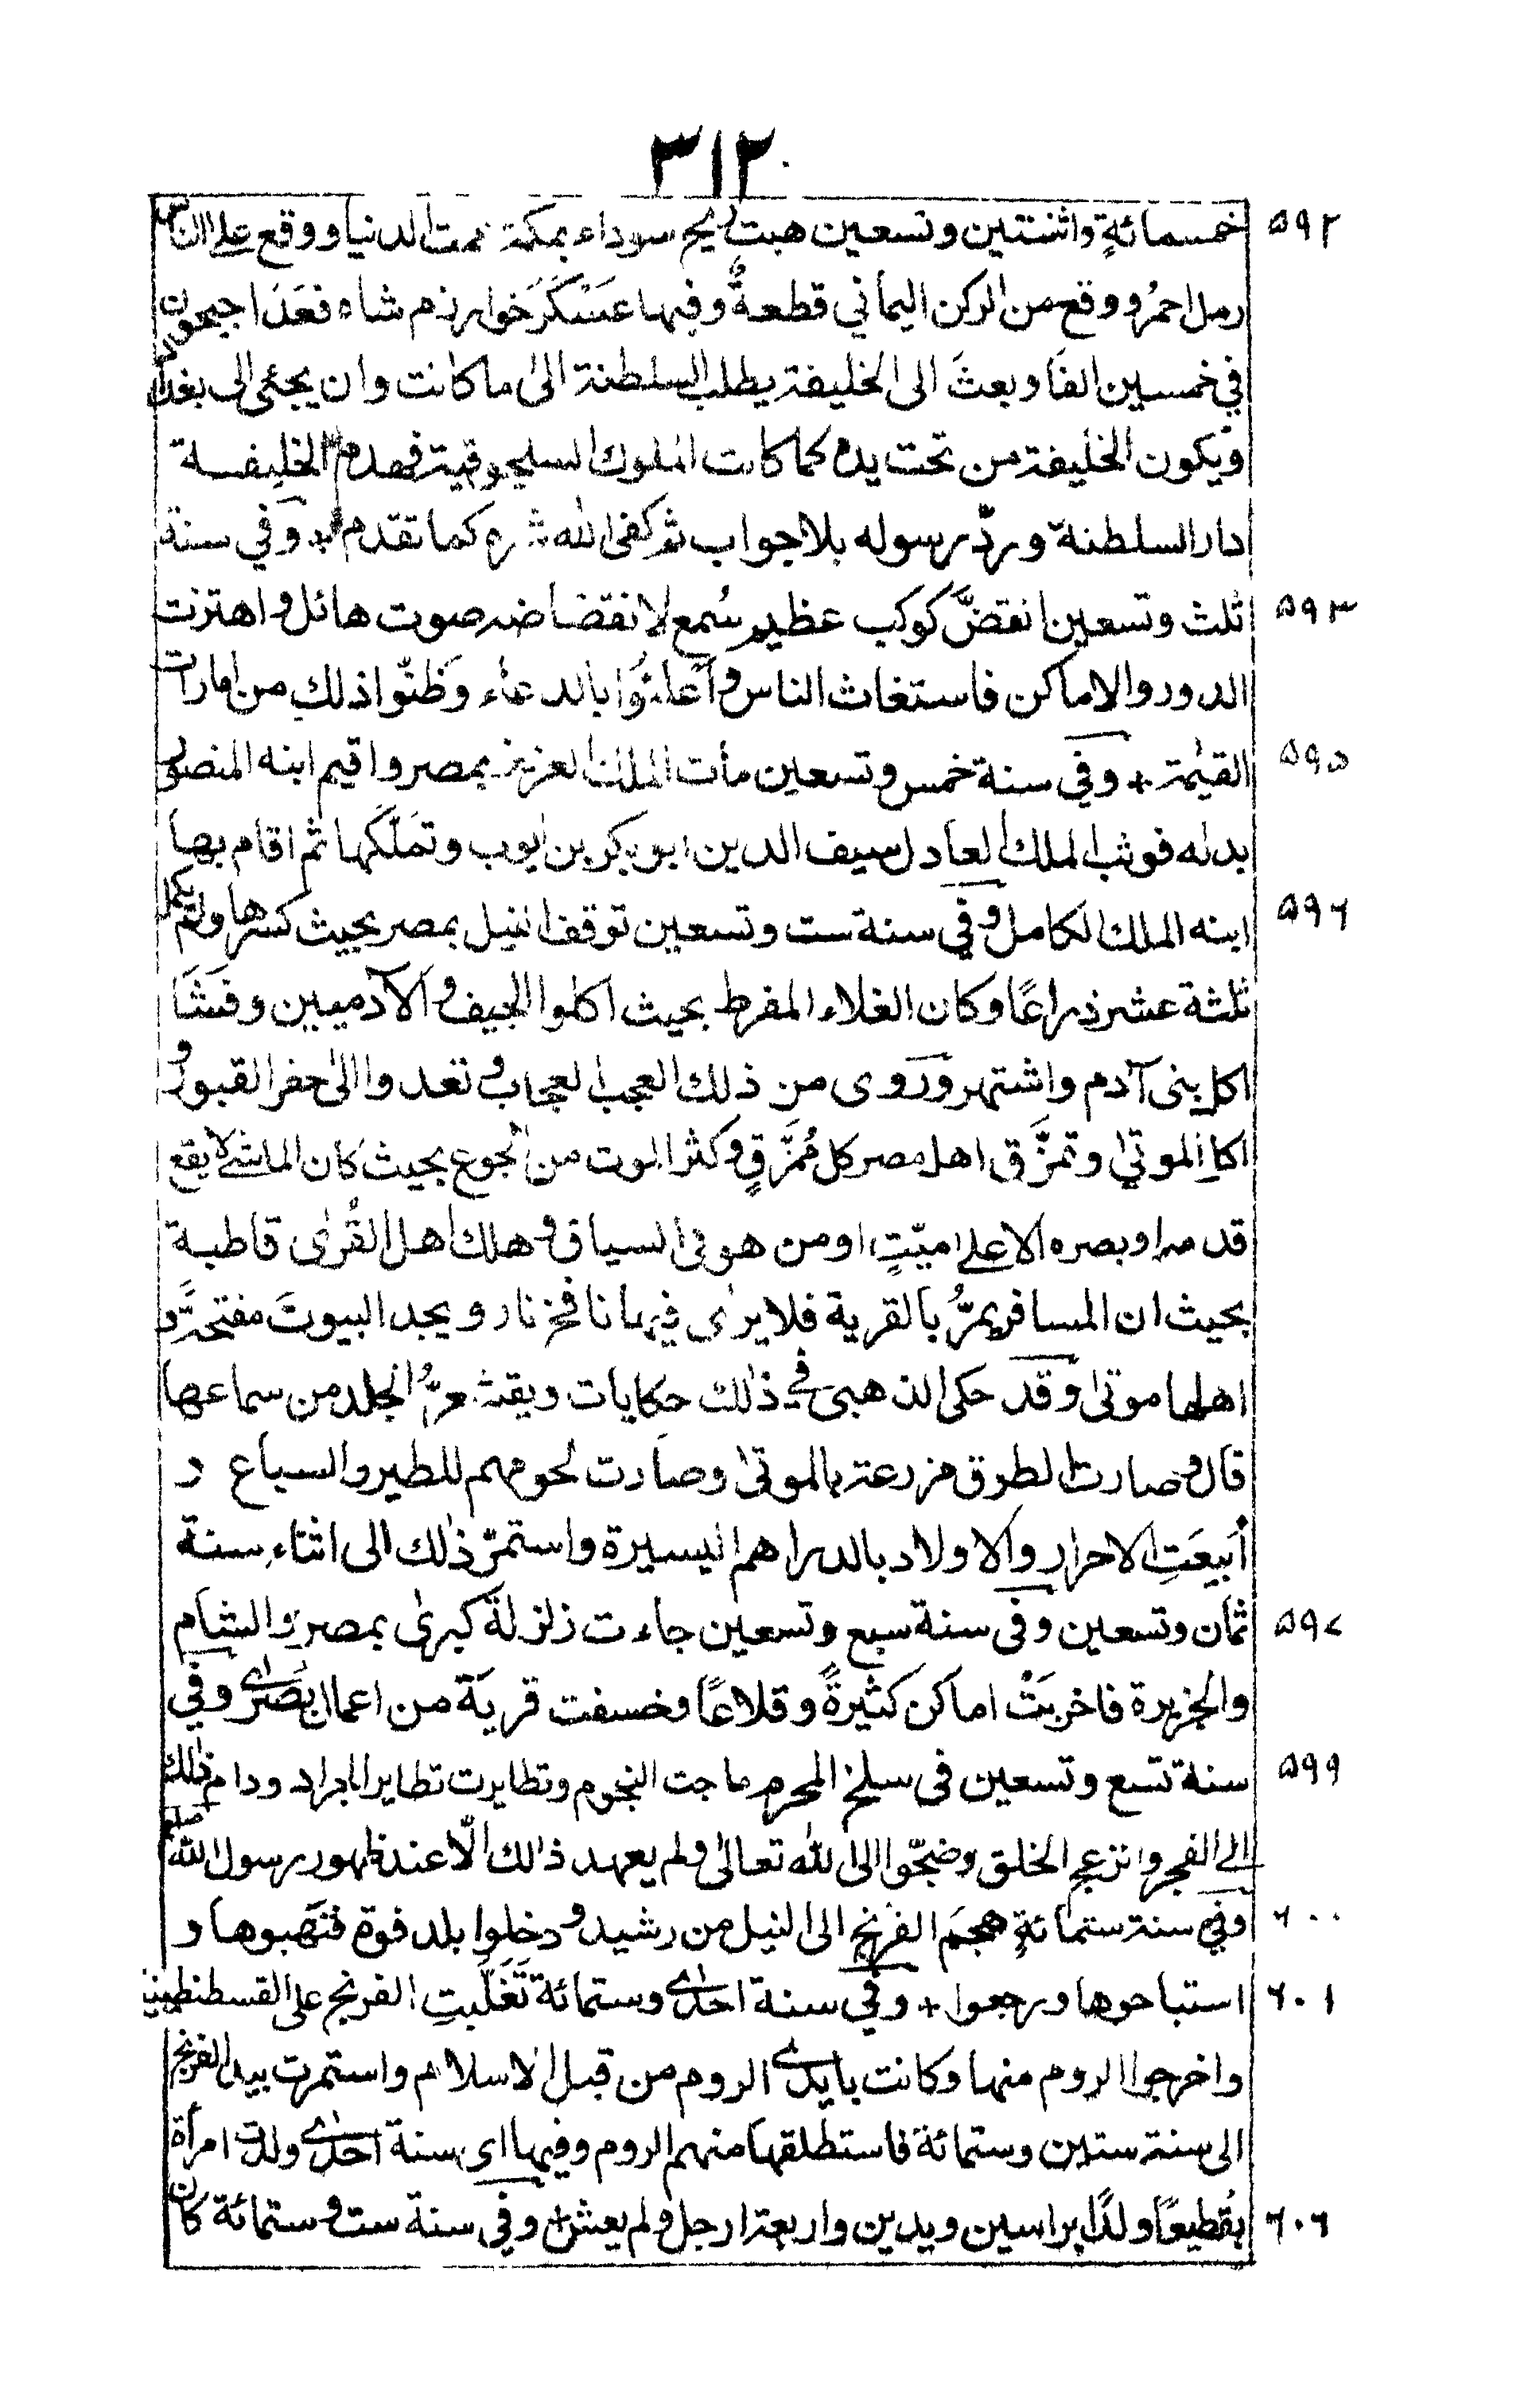 ٣١٢
خمسمائةٍ واثنتين وتسعين هبت ريح سوداء بمكة عمت الدنيا ووقع على الناس ٥٩٢
رمل احمرُ ووقع من الركن اليماني قطعةٌ وفيها عَسْكَرَ خوارزم شاه فعَدَا جيحون
في خمسين الفًا وبعثَ الى الخليفة يطلب السلطنة الى ما كانت وان يجئى الى بغداد
ويكون الخليفة من تحت يده كما كانت الملوك السلجوقية فهدم الخليفة
دار السلطنة وردّ رسوله بلا جواب ثم كفى الله شره كما تقدم وفي سنة
ثلث وتسعين انقضَّ كوكب عظيم سُمع لانقضاضه صوت هائل واهتزت ٥٩٣
الدور والاماكن فاستغاث الناس وأعلنُوا بالدعاء وظنّوا ذلك من امارات
القيٰمة + وفي سنة خمس وتسعين مات الملك العزيز بمصر واقيم ابنه المنصور ٥٩٥
بدله فوثب الملك العادل سيف الدين ابو بكر بن ايوب وتملّكها ثم اقام بها
ابنه الملك الكامل وفي سنة ست وتسعين توقف النيل بمصر بحيث كسرها ولم يكمل ٥٩٦
ثلثة عشر ذراعًا وكان الغلاء المفرط بحيث اكلوا الجيف والآدميين وفَشَا
اكل بنى آدم واشتهر وروى من ذلك العجب العجاب وتعدوا الى حفر القبور و
اكل الموتىٰ وتمزَّق اهل مصر كل مُمَزَّقٍ وكثر الموت من الجوع بحيث كان الماشى لا يقع
قدمه او بصره الا على ميّتٍ او من هو فى السياق وهلك اهل القُرٰى قاطبة
بحيث ان المسافر يمرُّ بالقرية فلا يرٰى فيها نافخ نار ويجد البيوتَ مفتحةً و
اهلها موتىٰ وقد حكى الذهبى فى ذٰلك حكايات ويقشعرُّ الجلد من سماعها
قال وصارت الطرق مزرعة بالموتىٰ وصارت لحومهم للطير والسباع و
أبيعَتِ الاحرار والاولاد بالدراهم اليسيرة واستمرّ ذٰلك الى اثناء سنة
ثمان وتسعين وفى سنة سبع وتسعين جاءت زلزلة كبرىٰ بمصر والشام ٥٩٧
والجزيرة فاخربَتْ اماكن كثيرةً وقلاعًا وخسفت قرية من اعمال بُصرٰى وفي
سنة تسع وتسعين فى سلخ المحرم ماجت النجوم وتطايرت تطاير الجراد ودام ذٰلك ٥٩٩
الى الفجر وانزعج الخلق وضجّوا الى الله تعالىٰ ولم يعهد ذالك الّا عند ظهور رسول الله صلعم
وفي سنة ستمائةٍ هجمَ الفرنج الى النيل من رشيد ودخلوا بلد فوة فنهبوها و ٦٠٠
استباحوها ورجعوا + وفي سنة احدٰى وستمائة تَغَلَّبتِ الفرنج على القسطنطينية ٦٠١
واخرجوا الروم منها وكانت بايدى الروم من قبل الاسلام واستمرت بيد الفرنج
الى سنة ستين وستمائة فاستطلقها منهم الروم وفيها اى سنة احدٰى ولدت امرأة
بقُطيعًا ولدًا براسين ويدين واربعة ارجل ولم يعش + وفي سنة ست وستمائة كان ٦٠٦